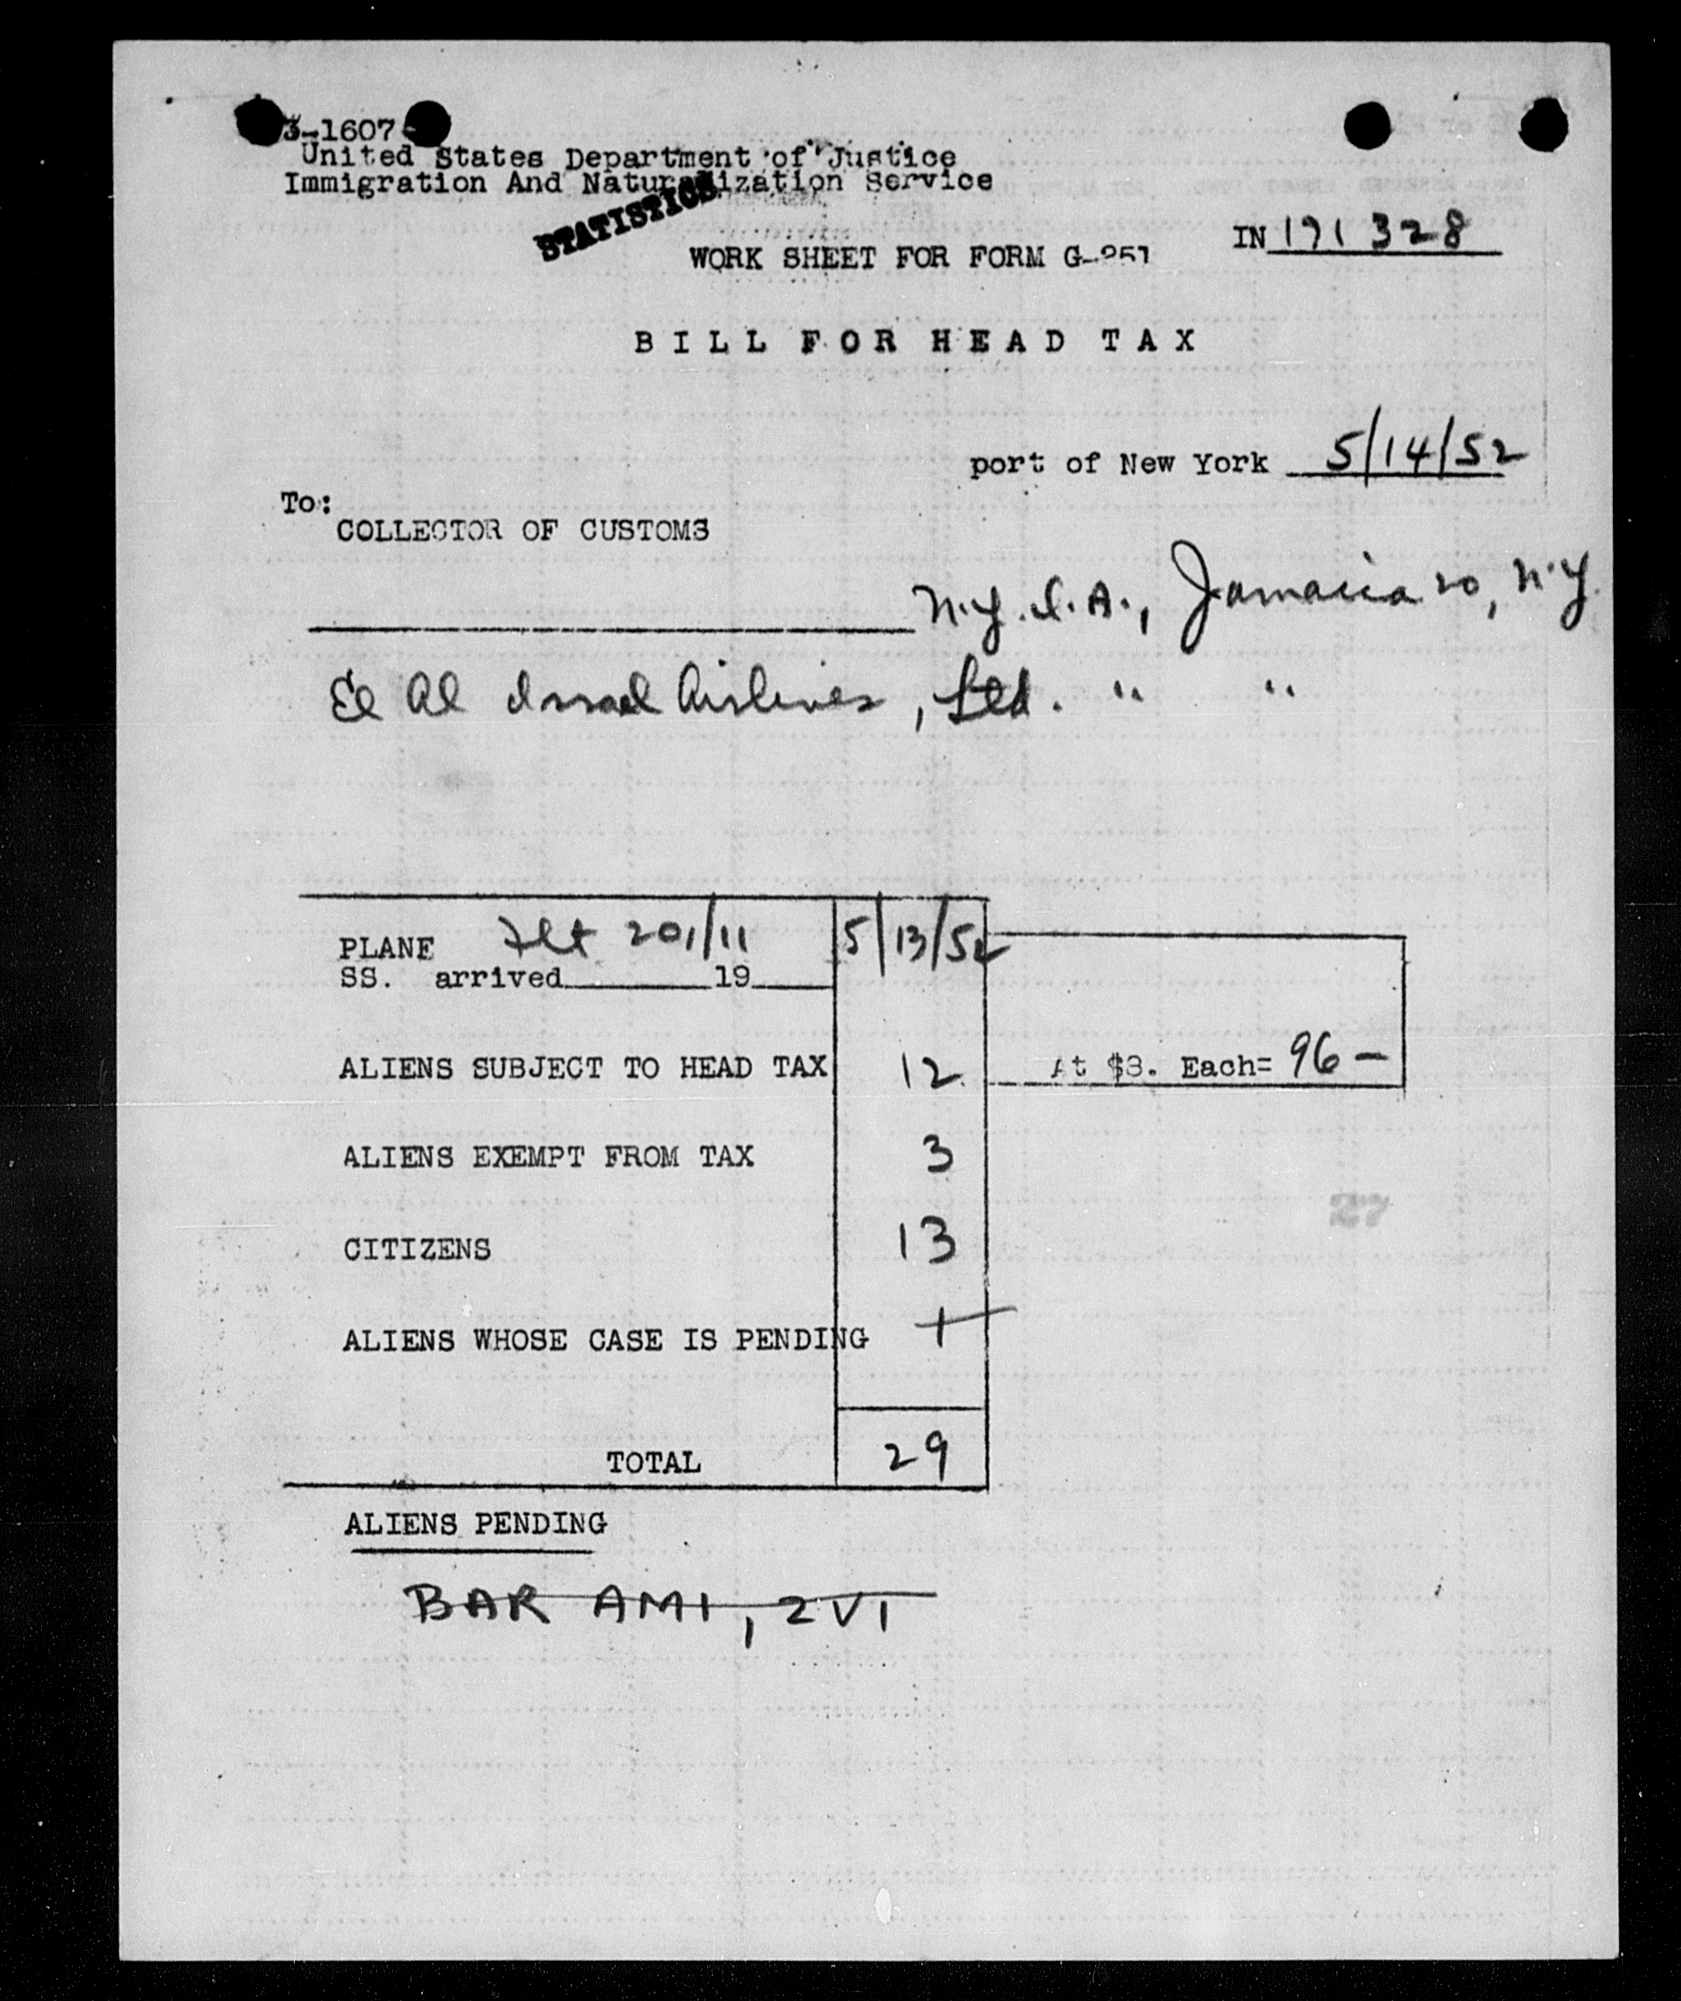 3-1607
United States Department of Justice
Immigration And Naturalization Service
STATISTICS
WORK SHEET FOR FORM G-251
IN 171328
BILL FOR HEAD TAX
port of New York 5/14/52
To:
COLLECTOR OF CUSTOMS
N.Y.I.A., Jamaica 20, N.Y.
El Al Israel Airlines, Ltd. " "
PLANE Flt 201/11 5/13/52
SS. arrived 19
ALIENS SUBJECT TO HEAD TAX 12 At $8. Each= 96 —
ALIENS EXEMPT FROM TAX 3
27
CITIZENS 13
ALIENS WHOSE CASE IS PENDING 1
TOTAL 29
ALIENS PENDING
BAR AMI, ZVI